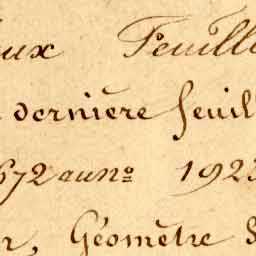 ux Feuill
dernière feuil
672 au nº 192
r, Géomètre